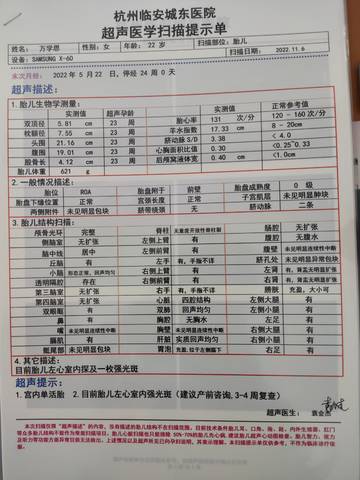 杭州临安城东医院
超声医学扫描提示单
姓名： 万学恩 性别：女 年龄：22 岁 扫描部位：胎儿
设备：SAMSUNG X-60 扫描日期： 2022.11.6
末次月经：2022 年 5 月 22 日，停经 24 周 0 天
超声描述：
1. 胎儿生物学测量：
实测值 超声孕龄 实测值 正常参考值
双顶径 5.81 cm 23 周 胎心率 131 次/分 120 - 160 次/分
枕额径 7.55 cm 23 周 羊水指数 17.33 cm 8 - 20cm
头围 21.16 cm 23 周 脐动脉 S/D 3.38 < 4.0
腹围 19.01 cm 23 周 心胸面积比值 0.30 <0.25~0.33
股骨长 4.12 cm 23 周 后颅窝液体宽 0.40 cm <1.0cm
胎儿体重 621 g
2. 一般情况描述：
胎位 ROA 胎盘附于 前壁 胎盘成熟度 0 级
胎盘下缘位置 正常 宫颈长度 正常 子宫肌层 未见明显肿块
两侧附件 未见明显包块 脐带绕颈 无 脐动脉 二条
3. 胎儿结构扫描：
颅骨光环 完整 脊柱 无显度开放性脊柱裂 肠腔 无扩张
侧脑室 无扩张 左侧上臂 有 腹腔 无腹水
脑中线 居中 左侧前臂 有 腹壁 未见明显连续性中断
丘脑 有 左手 有，手指不详 脐孔处 未见明显异常包块
小脑 形态正常，回声均匀 右侧上臂 有 左肾 有，肾盂无明显扩张
透明隔腔 存在 右侧前臂 有 右肾 有，肾盂无明显扩张
第三脑室 无扩张 右手 有，手指不详 膀胱 充盈，大小可
第四脑室 无扩张 心脏 四腔结构 左侧大腿 有
双眼眶 有 双肺 回声均匀 左侧小腿 有
鼻 有 胸腔 无胸水 左足 有
嘴 未见明显连续性中断 胸壁 未见明显连续性中断 右侧大腿 有
膈肌 有 肝脏 实质回声均匀 右侧小腿 有
骶尾部 未见明显包块 胃泡 充盈，位于左侧膈下 右足 有
4. 其它描述：
目前胎儿左心室内探及一枚强光斑
超声提示：
1. 宫内单活胎 2. 目前胎儿左心室内强光斑（建议产前咨询，3-4 周复查）
超声医生： 袁会杰